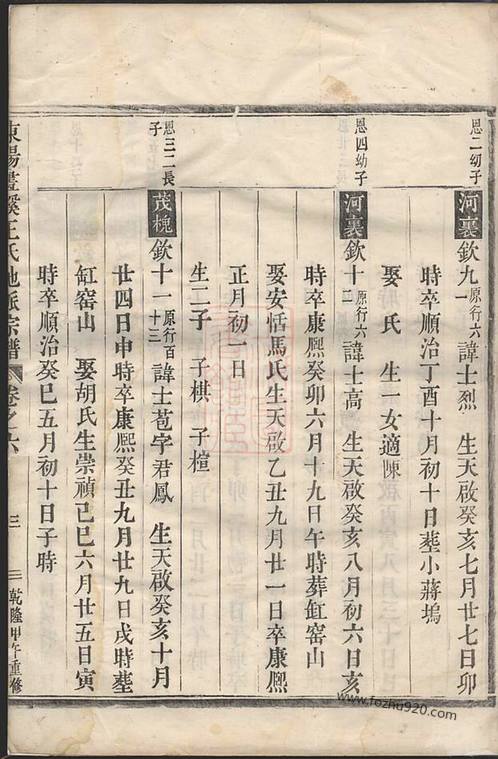 恩二幼子
河裏 欽九一 諱士烈 生天啟癸亥七月廿七日卯
時卒順治丁酉十月初十日塟小蔣塢
娶 氏 生一女適陳
恩四幼子
河裏 欽十二 原行六 諱士高 生天啟癸亥八月初六日亥
時卒康熙癸卯六月十九日午時葬缸窑山
娶安恬馬氏生天啟乙丑九月廿一日卒康熙
正月初一日
生二子 子棋 子楦
恩三二長子
茂槐 欽十一 原行百十三 諱士苞字君鳳 生天啟癸亥十月
廿四日申時卒康熙癸丑九月廿九日戌時塟
缸窑山 娶胡氏生崇禎己巳六月廿五日寅
時卒順治癸巳五月初十日子時
東陽晝溪王氏 派宗譜 卷之六 三 乾隆甲午重修
www.fozhu920.com